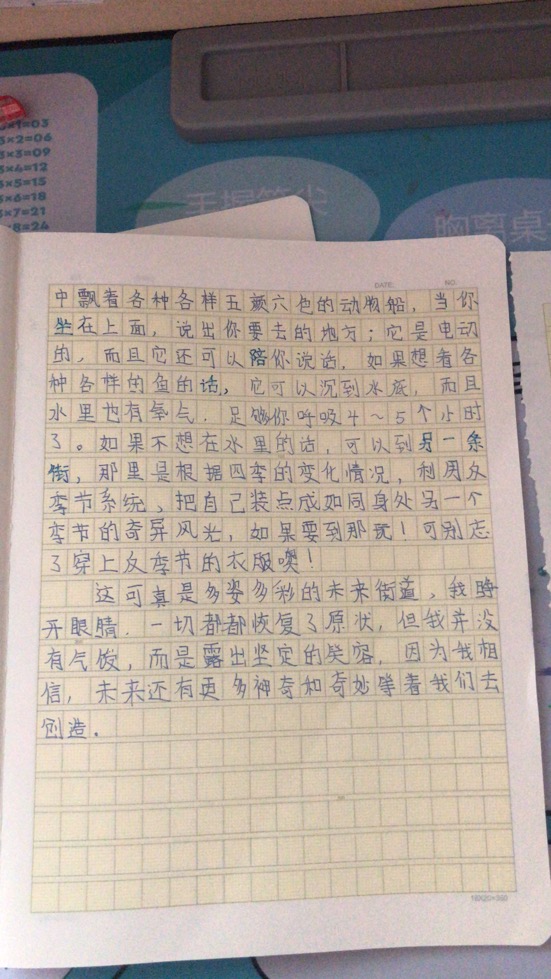 3×1=03
3×2=06
3×3=09
3×4=12
3×5=15
3×6=18
3×7=21
×8=24
手握笔尖
胸离桌
DATE: NO:
中飘着各种各样五颜六色的动物船，当你
坐在上面，说出你要去的地方；它是电动
的，而且它还可以陪你说话，如果想看各
种各样的鱼的话，它可以沉到水底，而且
水里也有氧气．足够你呼吸4～5个小时
了。如果不想在水里的话，可以到另一条
街，那里是根据四季的变化情况，利用反
季节系统，把自己装点成如同身处另一个
季节的奇异风光，如果要到那玩！可别忘
了穿上反季节的衣服噢！
这可真是多姿多彩的未来街道，我睁
开眼睛．一切都都恢复了原状，但我并没
有气馁，而是露出坚定的笑容，因为我相
信，未来还有更多神奇和奇妙等着我们去
创造．